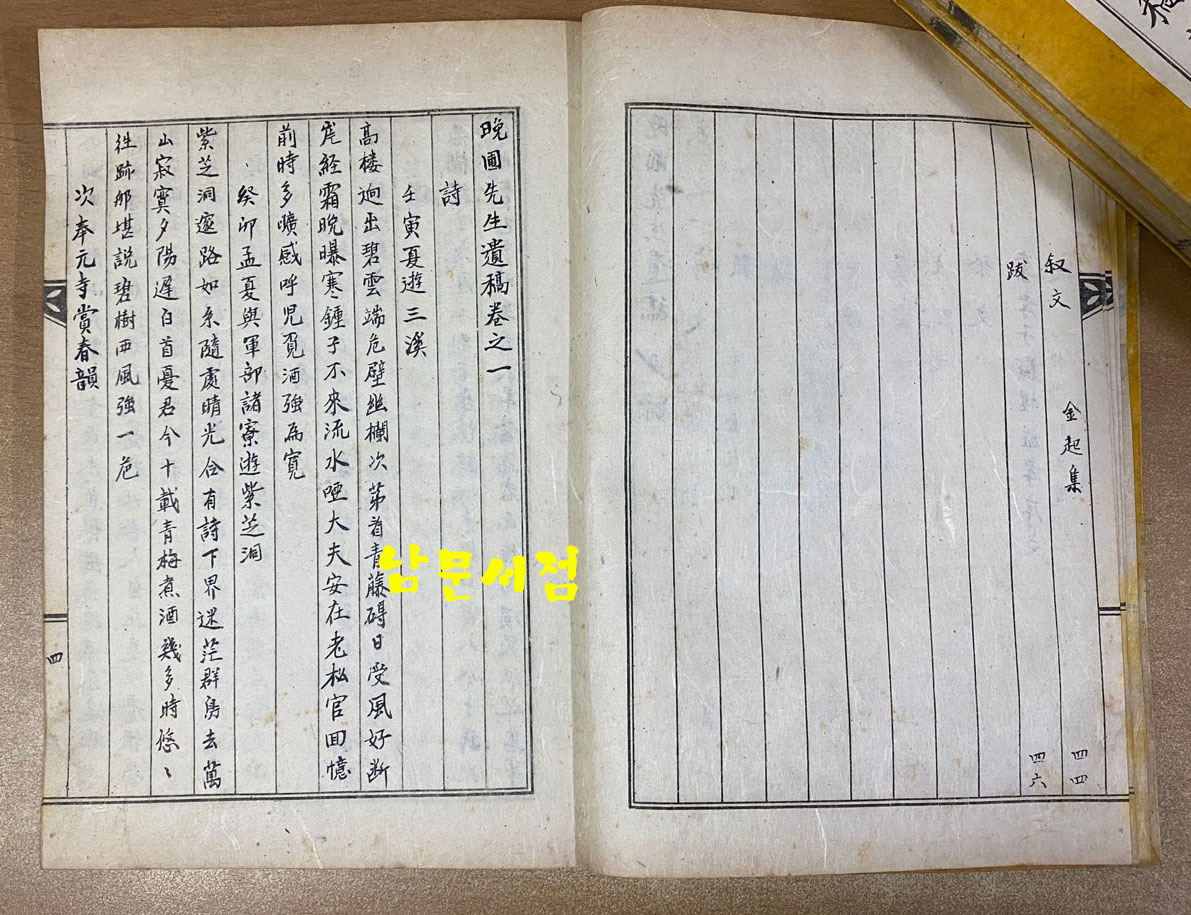 叙文 金起集 四四
跋 四六
晚圃先生遺稿卷之一
詩
壬寅夏遊三溪
高楼逈出碧雲端危壁幽欄次苐看青藤碍日受風好断
崖経霜晩曝寒鍾子不來流水咽大夫安在老松官回憶
前時多曠感呼児覓酒強為寛
癸卯孟夏與軍部諸寮遊紫芝洞
紫芝洞邃路如糸隨處晴光合有詩下界迷茫群鳥去萬
山寂寞夕陽遲白首憂君今十載青梅煮酒幾多時悠〻
徃跡那堪説碧樹西風強一巵
次奉元寺賞春韻
四
남문서점